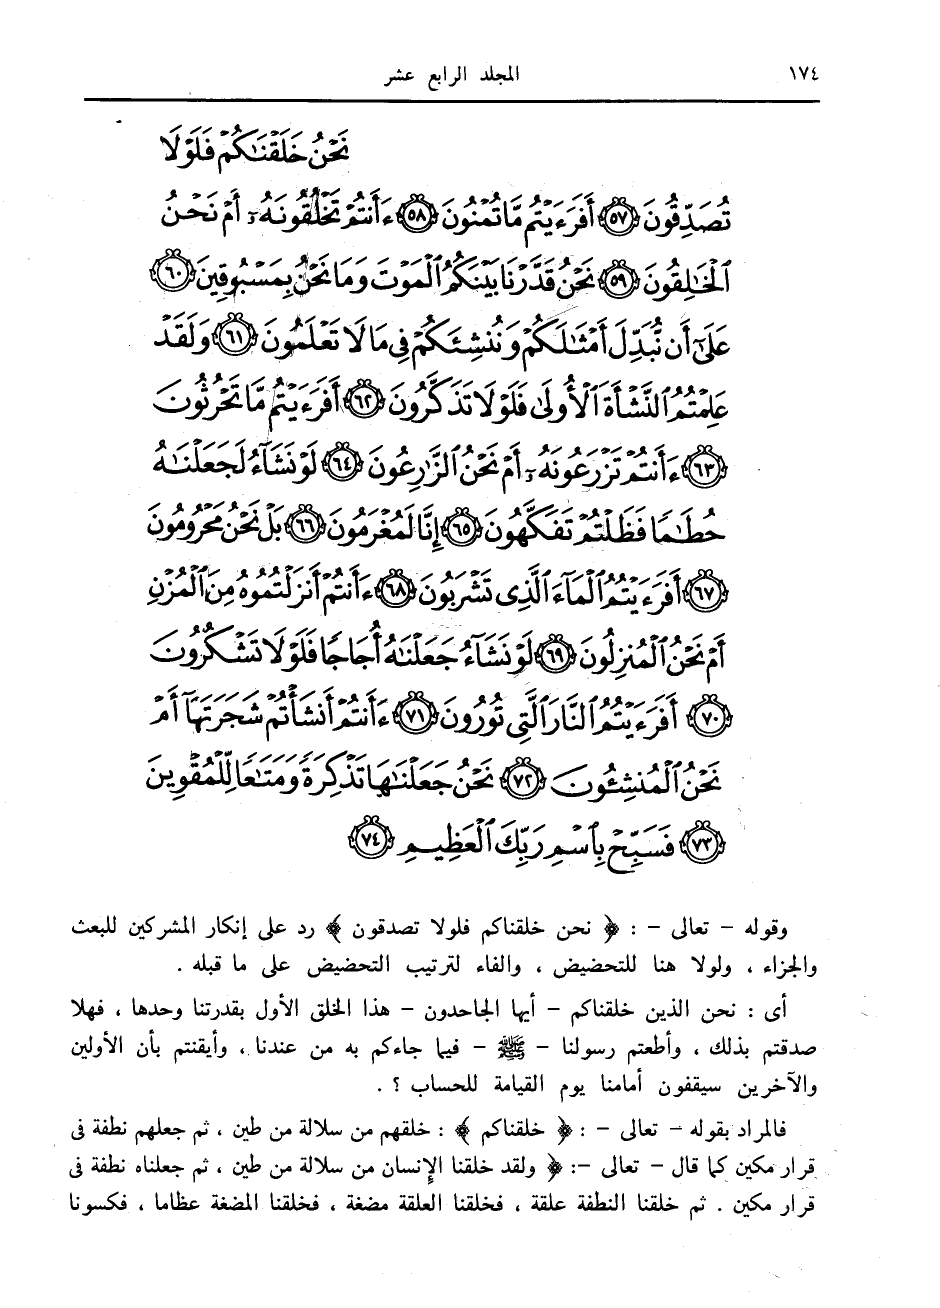 ١٧٤ المجلد الرابع عشر
نَحْنُ خَلَقْنَٰكُمْ فَلَوْلَا
تُصَدِّقُونَ ۝٥٧ أَفَرَءَيْتُم مَّا تُمْنُونَ ۝٥٨ ءَأَنتُمْ تَخْلُقُونَهُۥٓ أَمْ نَحْنُ
ٱلْخَٰلِقُونَ ۝٥٩ نَحْنُ قَدَّرْنَا بَيْنَكُمُ ٱلْمَوْتَ وَمَا نَحْنُ بِمَسْبُوقِينَ ۝٦٠
عَلَىٰٓ أَن نُّبَدِّلَ أَمْثَٰلَكُمْ وَنُنشِئَكُمْ فِى مَا لَا تَعْلَمُونَ ۝٦١ وَلَقَدْ
عَلِمْتُمُ ٱلنَّشْأَةَ ٱلْأُولَىٰ فَلَوْلَا تَذَكَّرُونَ ۝٦٢ أَفَرَءَيْتُم مَّا تَحْرُثُونَ
۝٦٣ ءَأَنتُمْ تَزْرَعُونَهُۥٓ أَمْ نَحْنُ ٱلزَّٰرِعُونَ ۝٦٤ لَوْ نَشَآءُ لَجَعَلْنَٰهُ
حُطَٰمًا فَظَلْتُمْ تَفَكَّهُونَ ۝٦٥ إِنَّا لَمُغْرَمُونَ ۝٦٦ بَلْ نَحْنُ مَحْرُومُونَ
۝٦٧ أَفَرَءَيْتُمُ ٱلْمَآءَ ٱلَّذِى تَشْرَبُونَ ۝٦٨ ءَأَنتُمْ أَنزَلْتُمُوهُ مِنَ ٱلْمُزْنِ
أَمْ نَحْنُ ٱلْمُنزِلُونَ ۝٦٩ لَوْ نَشَآءُ جَعَلْنَٰهُ أُجَاجًا فَلَوْلَا تَشْكُرُونَ
۝٧٠ أَفَرَءَيْتُمُ ٱلنَّارَ ٱلَّتِى تُورُونَ ۝٧١ ءَأَنتُمْ أَنشَأْتُمْ شَجَرَتَهَآ أَمْ
نَحْنُ ٱلْمُنشِـُٔونَ ۝٧٢ نَحْنُ جَعَلْنَٰهَا تَذْكِرَةً وَمَتَٰعًا لِّلْمُقْوِينَ
۝٧٣ فَسَبِّحْ بِٱسْمِ رَبِّكَ ٱلْعَظِيمِ ۝٧٤
وقوله – تعالى – : ﴿ نحن خلقناكم فلولا تصدقون ﴾ رد على إنكار المشركين للبعث
والجزاء ، ولولا هنا للتحضيض ، والفاء لترتيب التحضيض على ما قبله .
أى : نحن الذين خلقناكم – أيها الجاحدون – هذا الخلق الأول بقدرتنا وحدها ، فهلا
صدقتم بذلك ، وأطعتم رسولنا – ﷺ – فيما جاءكم به من عندنا ، وأيقنتم بأن الأولين
والآخرين سيقفون أمامنا يوم القيامة للحساب ؟ .
فالمراد بقوله – تعالى – : ﴿ خلقناكم ﴾ : خلقهم من سلالة من طين ، ثم جعلهم نطفة فى
قرار مكين كما قال – تعالى –: ﴿ ولقد خلقنا الإِنسان من سلالة من طين ، ثم جعلناه نطفة فى
قرار مكين . ثم خلقنا النطفة علقة ، فخلقنا العلقة مضغة ، فخلقنا المضغة عظاما ، فكسونا